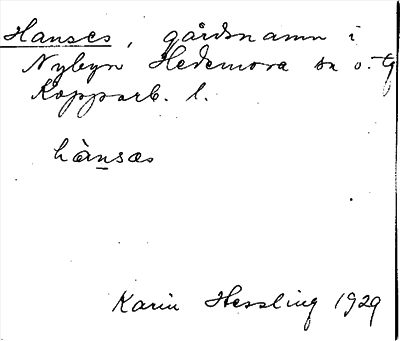 Hanses, gårdsnamn i
Nybyn Hedemora sn o.
Kopparb. l.
hànsæs
Karin Hessling 1929